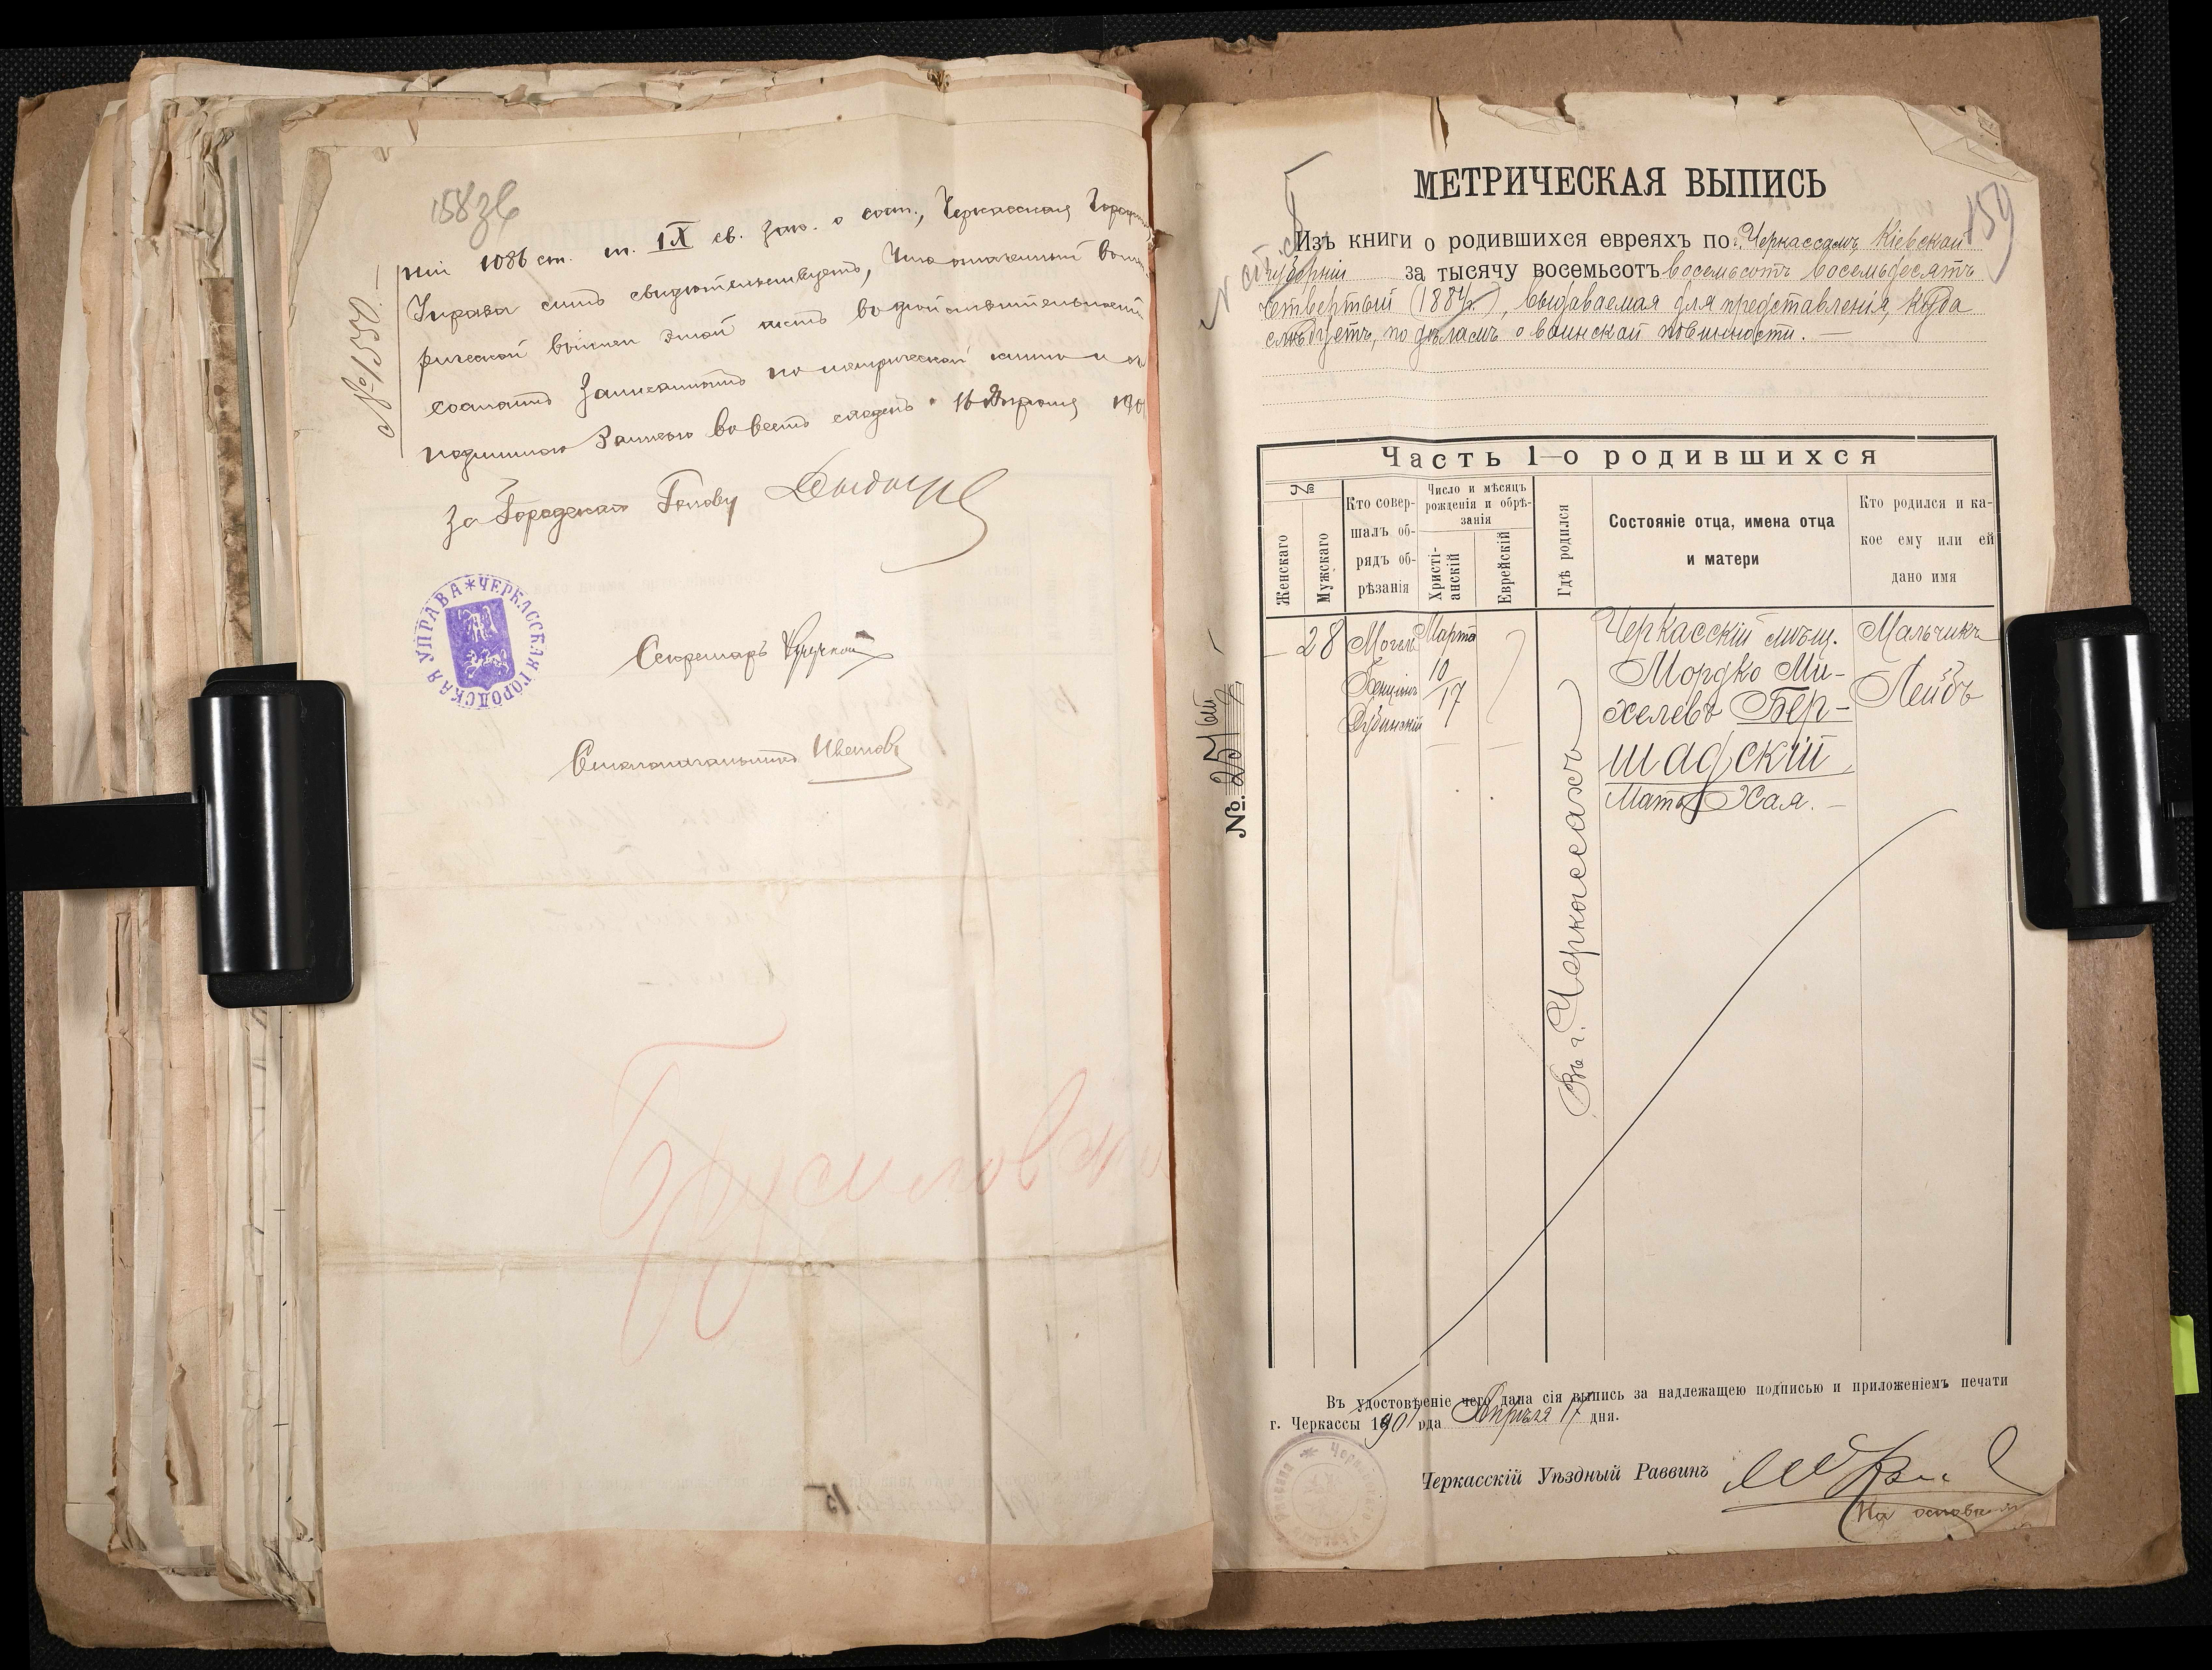 158 об
№ 1550.
ніи 1086 ст. т. IX св. зак. о сост., Черкасская Город
Управа симъ свидѣтельствуетъ, что означенный въ
рической выписи этой актъ въ дѣйствительности
состоитъ записаннымъ по метрической книгѣ и съ
подлинною записью во всемъ сходенъ. 16 Апрѣля 190
За Городского Голову
ЧЕРКАССКАЯ ГОРОДСКАЯ УПРАВА
Секретарь
Столоначальникъ
159
МЕТРИЧЕСКАЯ ВЫПИСЬ
Изъ книги о родившихся евреяхъ по г. Черкассамъ, Кіевской
губерніи за тысячу восемьсотъ восемьсотъ восемьдесятъ
четвертый (1884 г.), выдаваемая для представленія, куда
слѣдуетъ, по дѣламъ о воинской повинности. —
Часть 1-о родившихся
№
Женскаго
Мужскаго
Кто совер-
шалъ об-
рядъ об-
рѣзанія
Число и мѣсяцъ
рожденія и обрѣ-
занія
Христі-
анскій
Еврейскій
Гдѣ родился
Состояніе отца, имена отца
и матери
Кто родился и ка-
кое ему или ей
дано имя
— 28
Могель
Бенціонъ
Дубинскій
Марта
10
17
Въ г. Черкассахъ
Черкасскій мѣщ.
Мордко Ми-
хелевъ Бер-
шадскій
Мать Хая. —
Мальчикъ
Лейбъ
№. 25
Въ удостовѣреніе чего дана сія выпись за надлежащею подписью и приложеніемъ печати
г. Черкассы 1901 года Апрѣля 17 дня.
Черкасскій Уѣздный Раввинъ
На основа